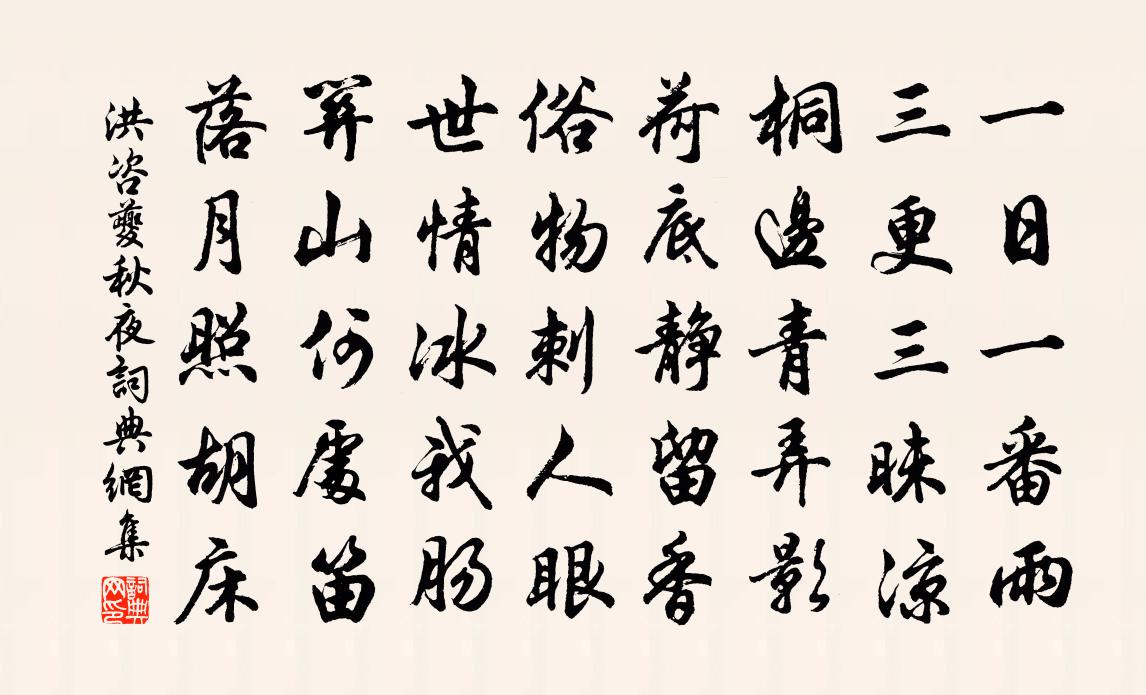 一日一番雨
三更三昧凉
桐邊青弄影
荷底静留香
俗物刺人眼
世情冰我肠
關山何處笛
落月照胡床
洪咨夔秋夜詞典網集
詞典网印